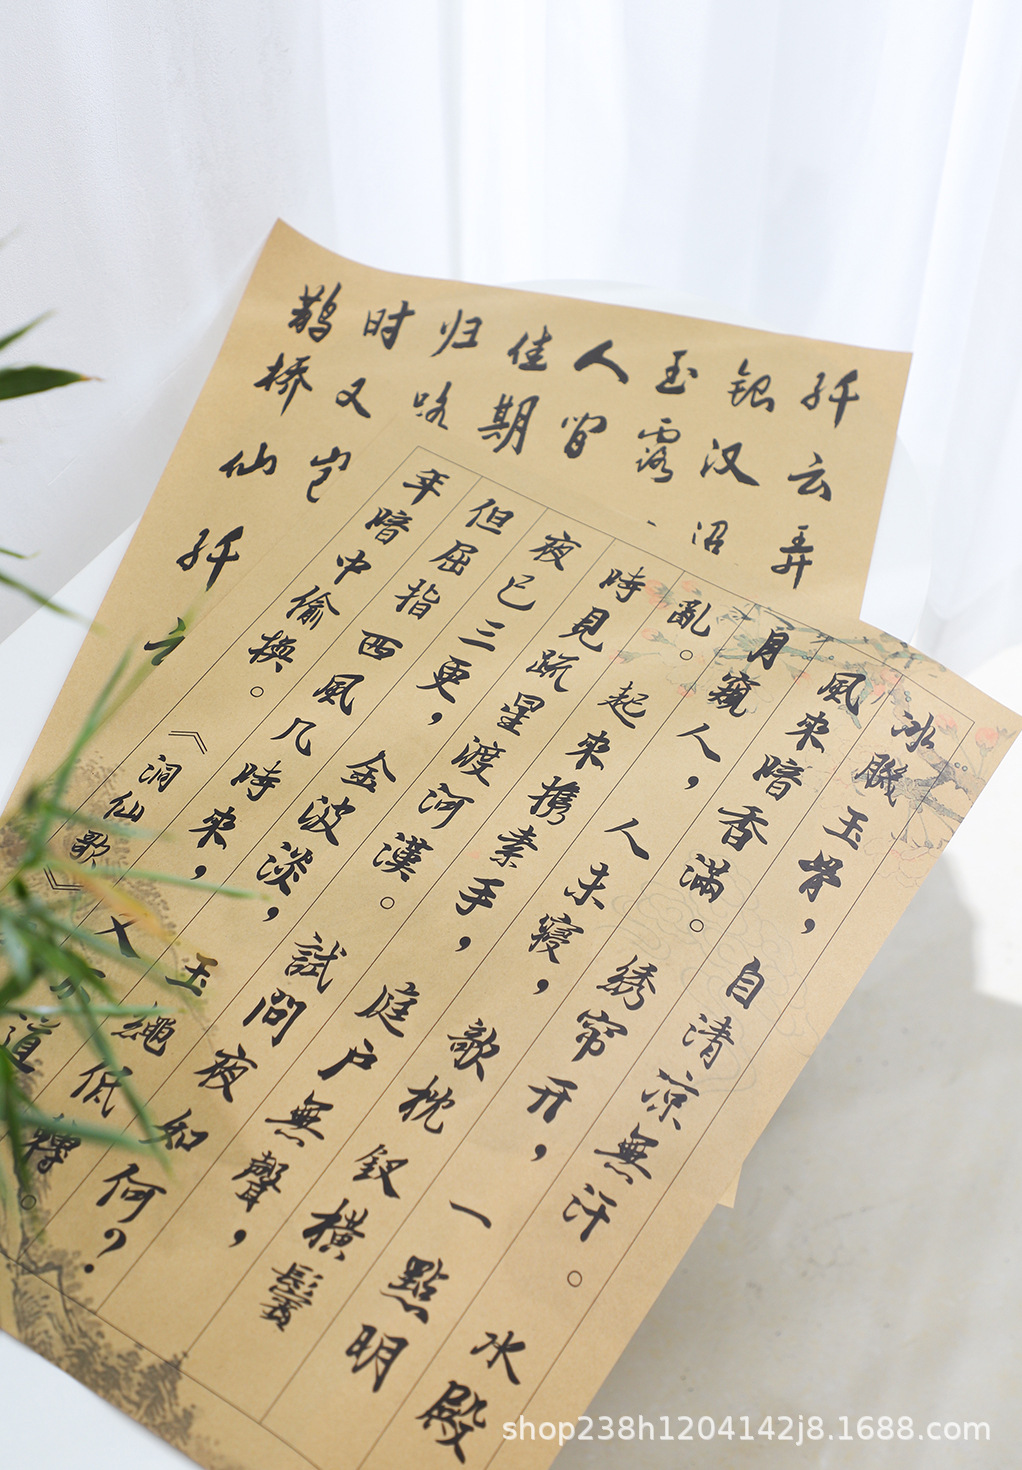 冰肌玉骨，自清凉無汗。水殿
風來暗香滿。綉帘开，一點明
月窺人，人未寢，欹枕釵橫鬢
亂。起來携素手，庭户無聲，
時見疏星渡河漢。試問夜如何？
夜已三更，金波淡，玉繩低轉。
但屈指西風几時來，又不道
年暗中偷換。《洞仙歌》
纤云弄
银汉迢
玉露
人间
佳期
归路
时又岂
鹊桥仙 纤云
shop238h1204142j8.1688.com